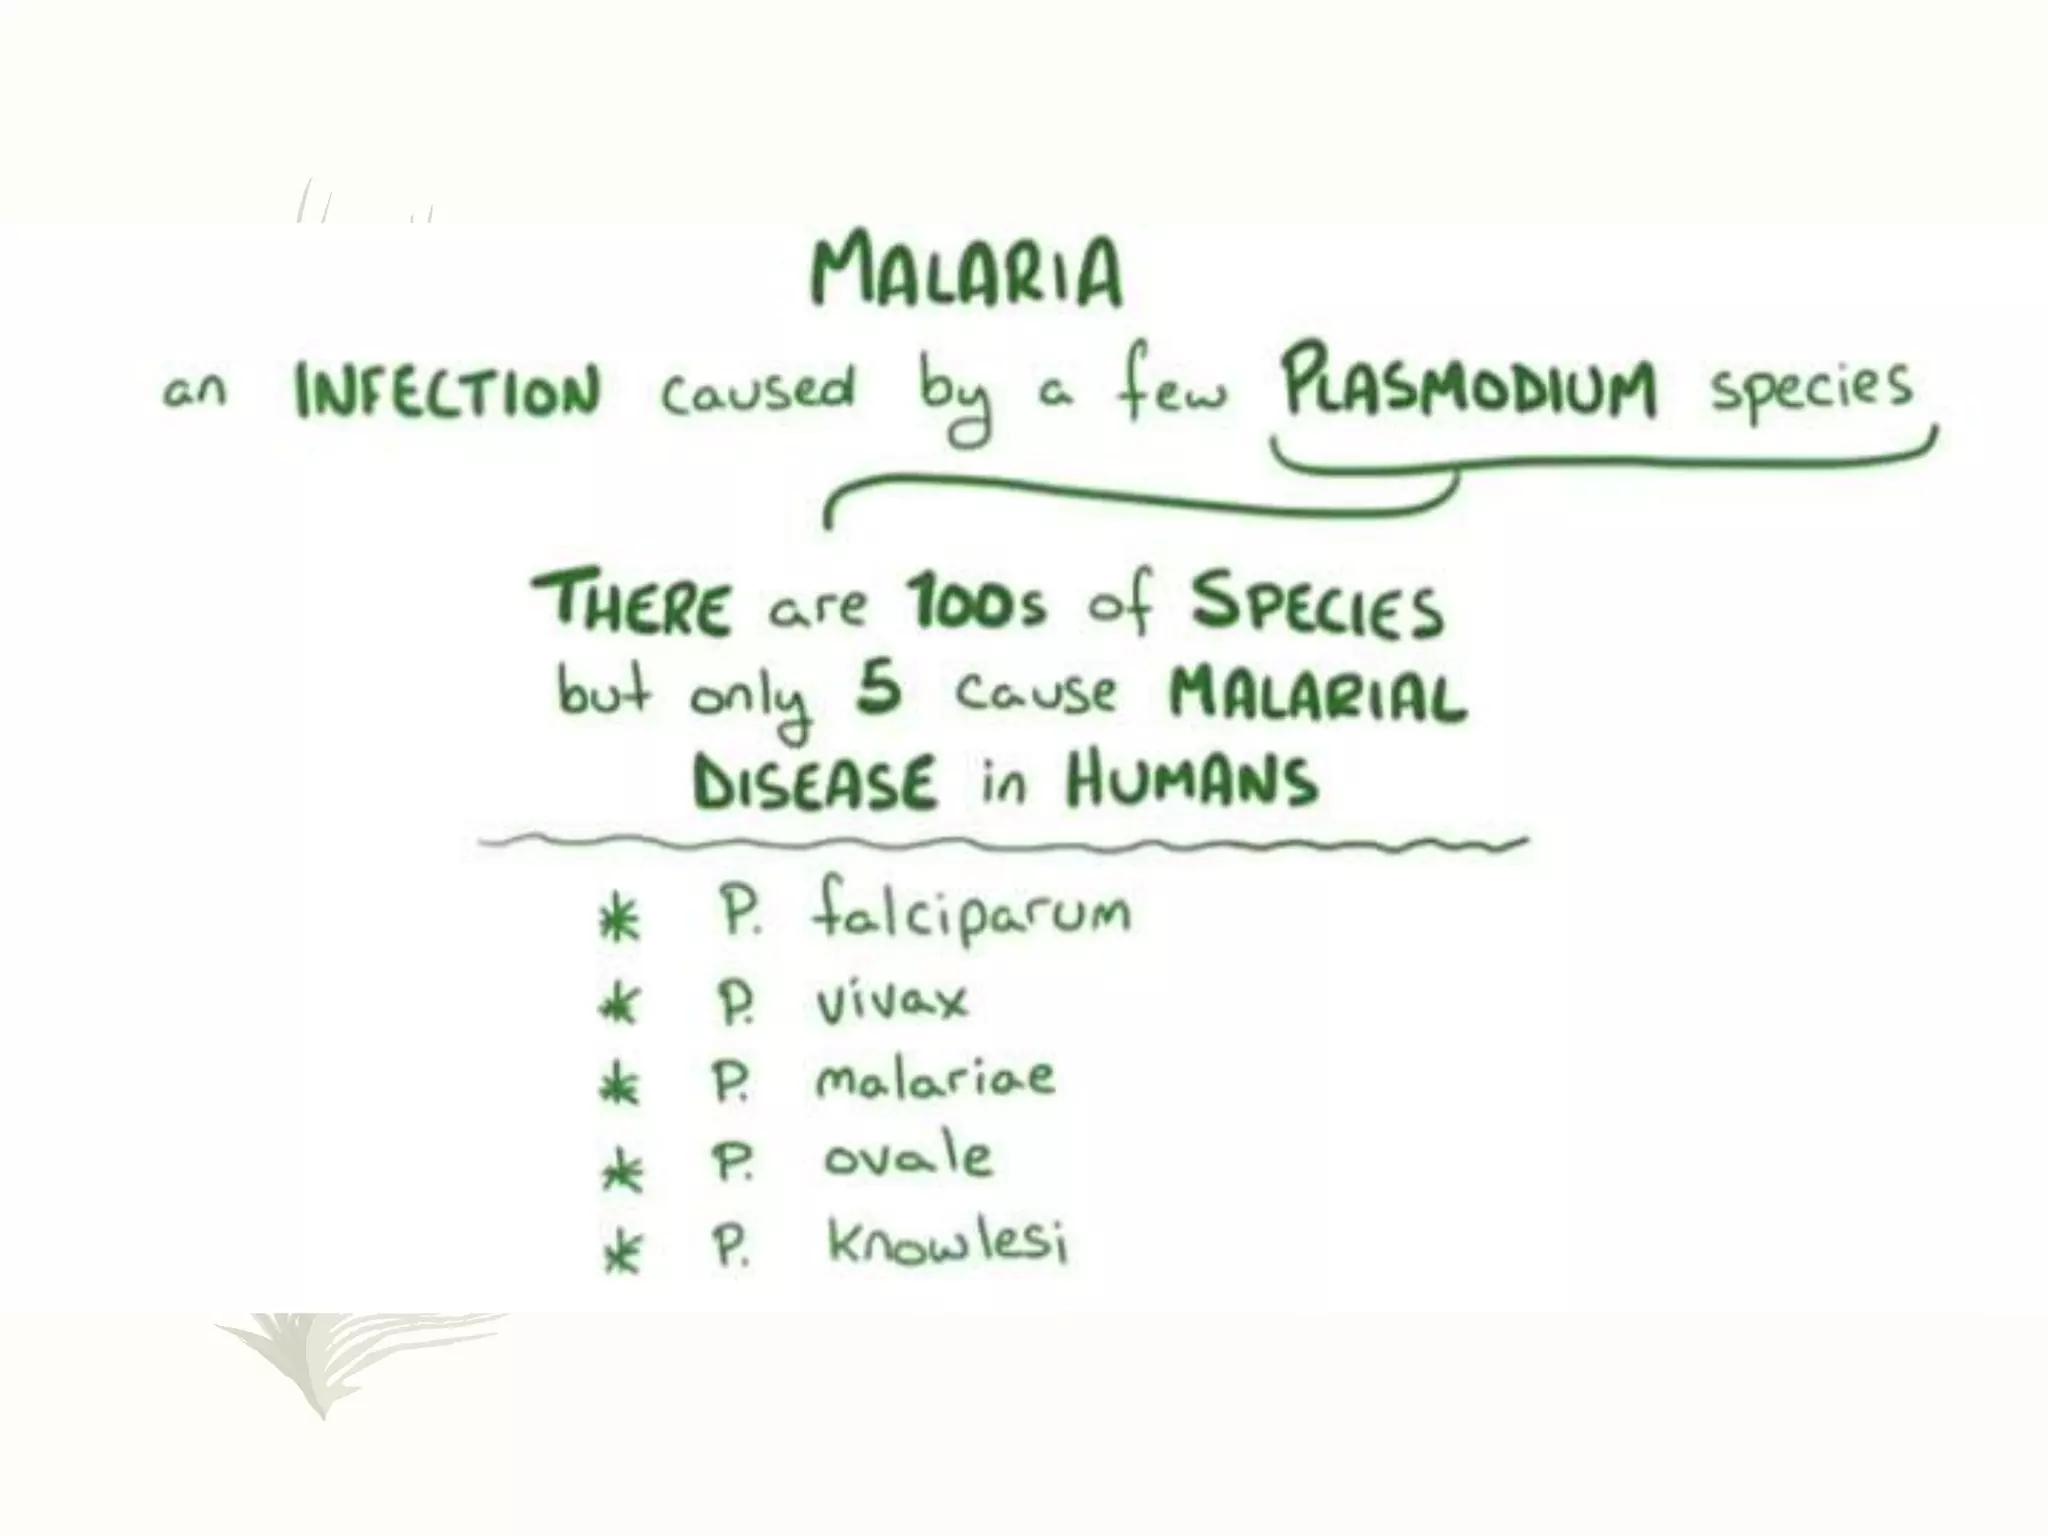 MALARIA
an INFECTION caused by a few PLASMODIUM species
THERE are 100s of SPECIES
but only 5 cause MALARIAL
DISEASE in HUMANS
* P. falciparum
* P. vivax
* P. malariae
* P. ovale
* P. knowlesi